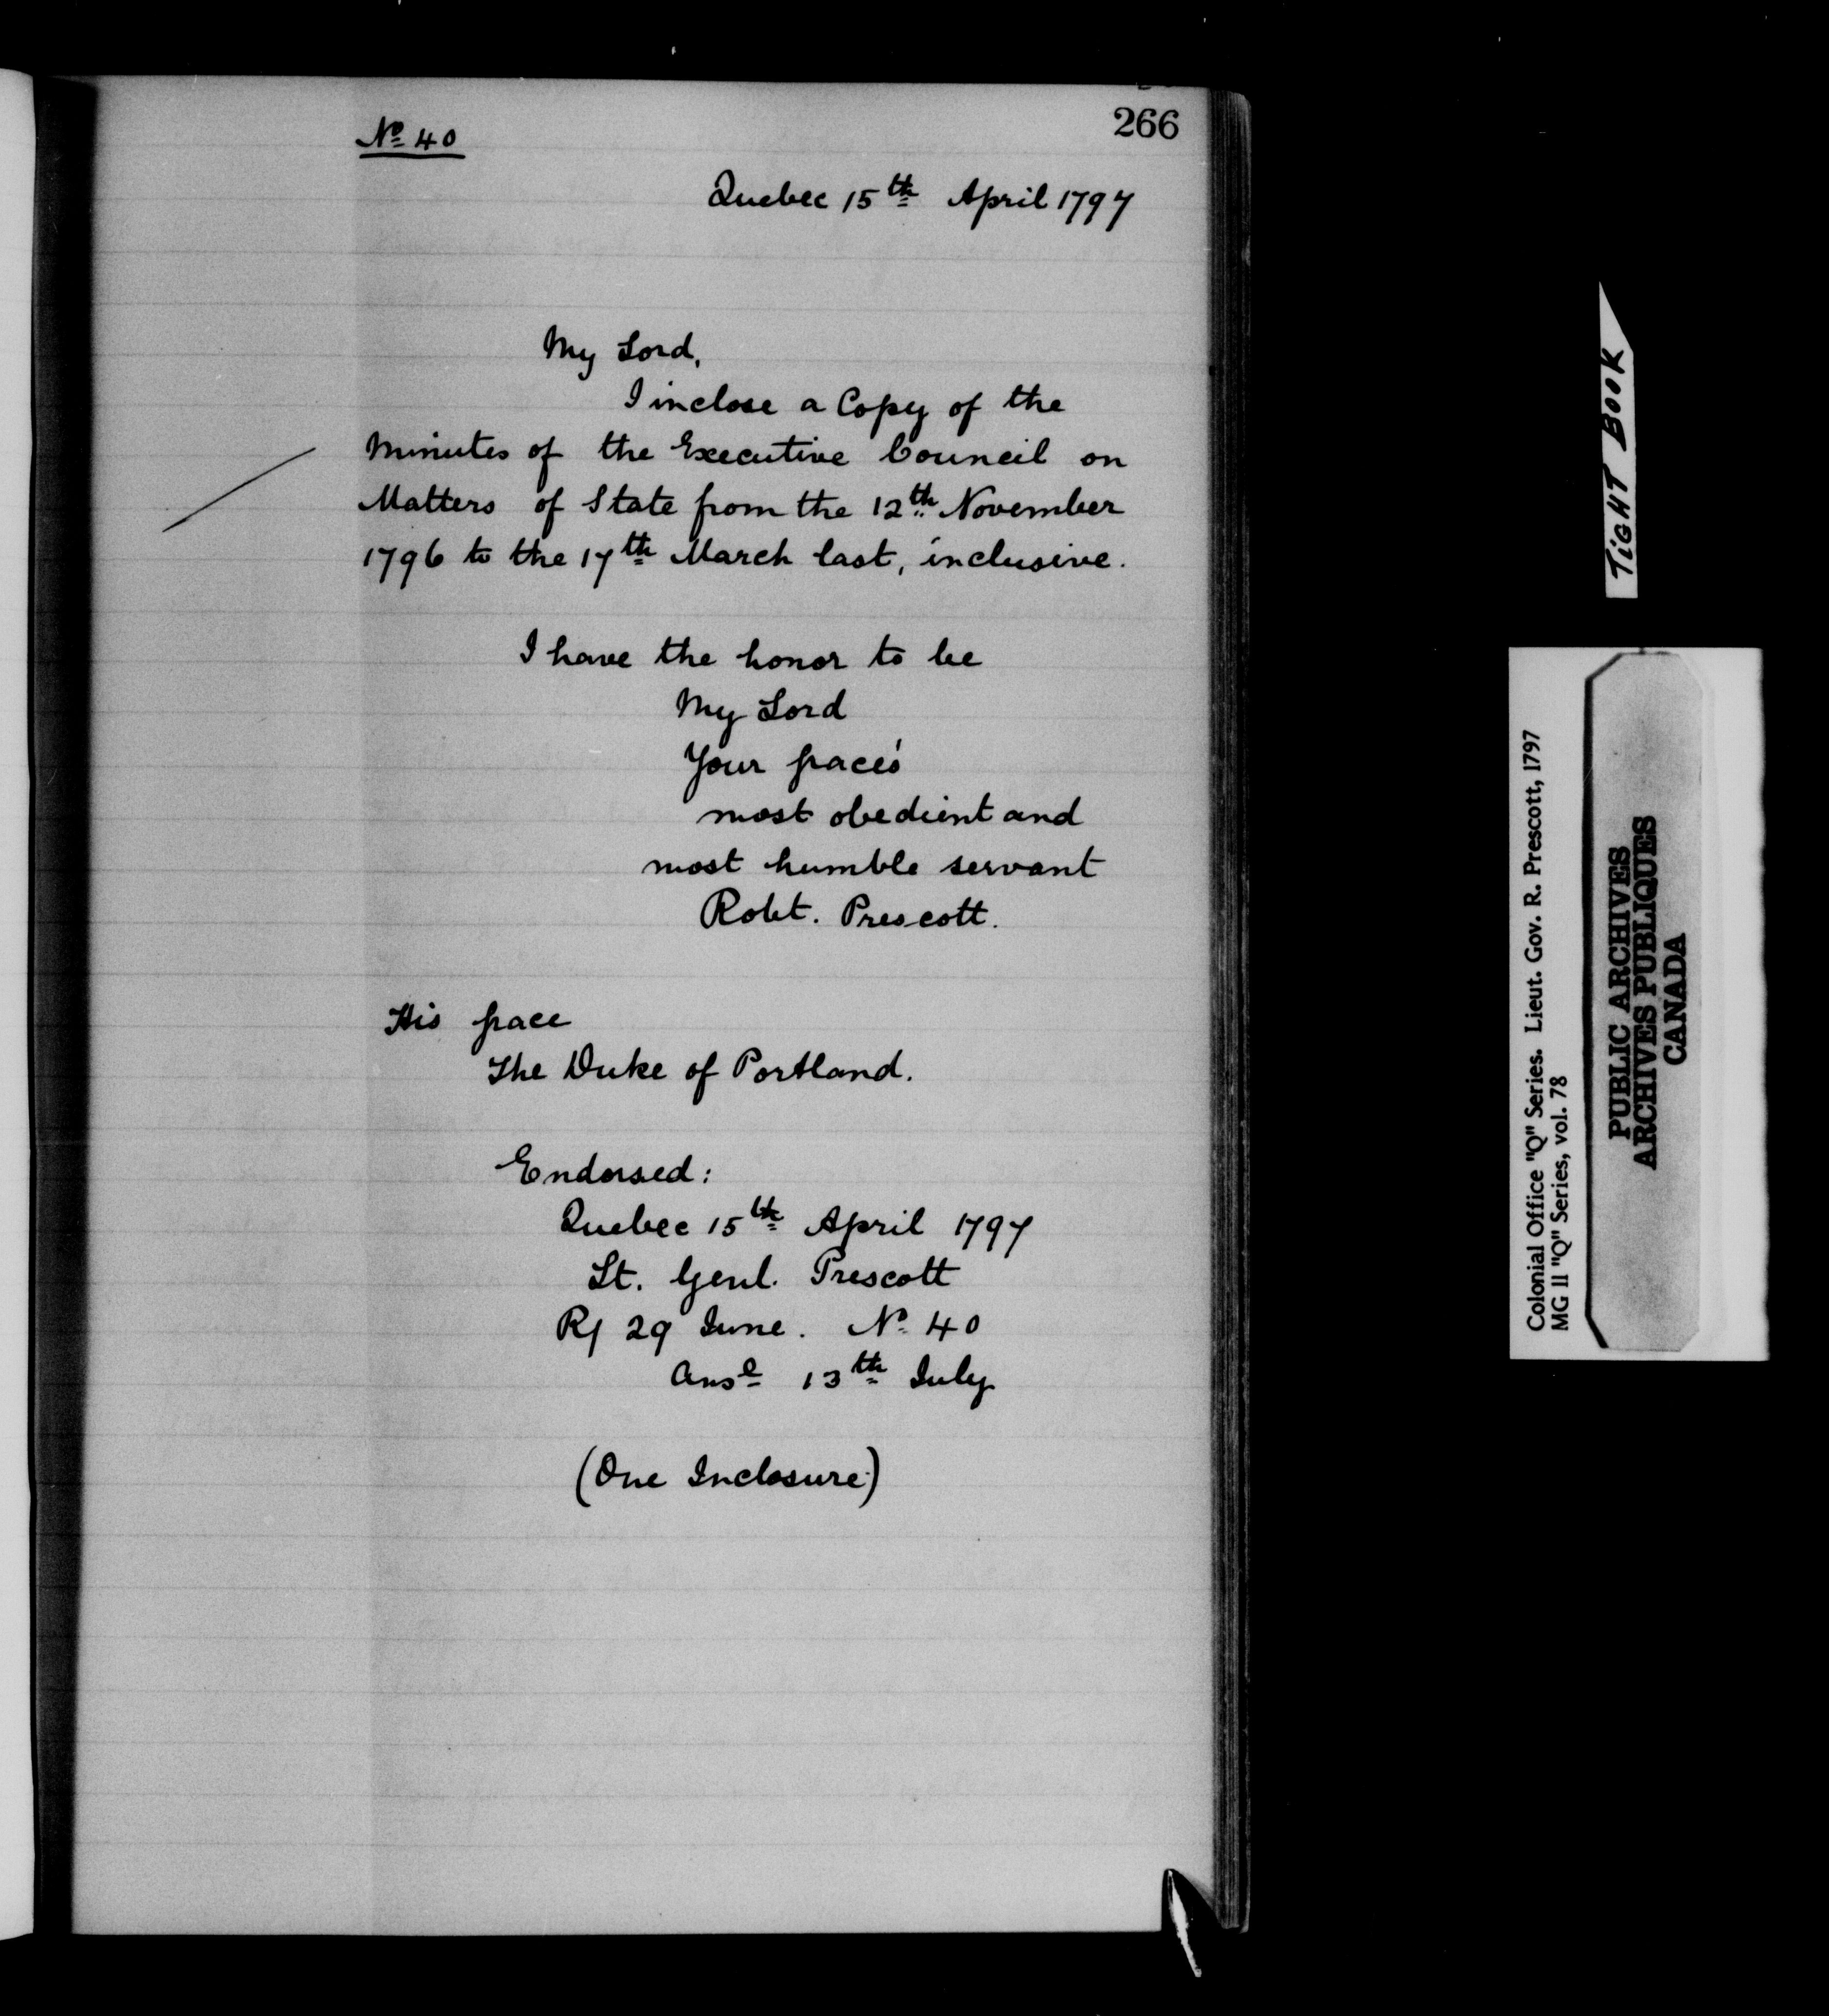 266
Nº 40
Quebec 15th April 1797
My Lord,
I inclose a Copy of the
Minutes of the Executive Council on
Matters of State from the 12th November
1796 to the 17th March last, inclusive.
I have the honor to be
My Lord
Your Grace's
most obedient and
most humble servant
Robt. Prescott.
His Grace
The Duke of Portland.
Endorsed:
Quebec 15th April 1797
Lt. Genl. Prescott
R/ 29 June. Nº 40
Ansd 13th July
(One Inclosure)
TIGHT BOOK
Colonial Office "Q" Series. Lieut. Gov. R. Prescott, 1797
MG II "Q" Series, vol. 78
PUBLIC ARCHIVES
ARCHIVES PUBLIQUES
CANADA